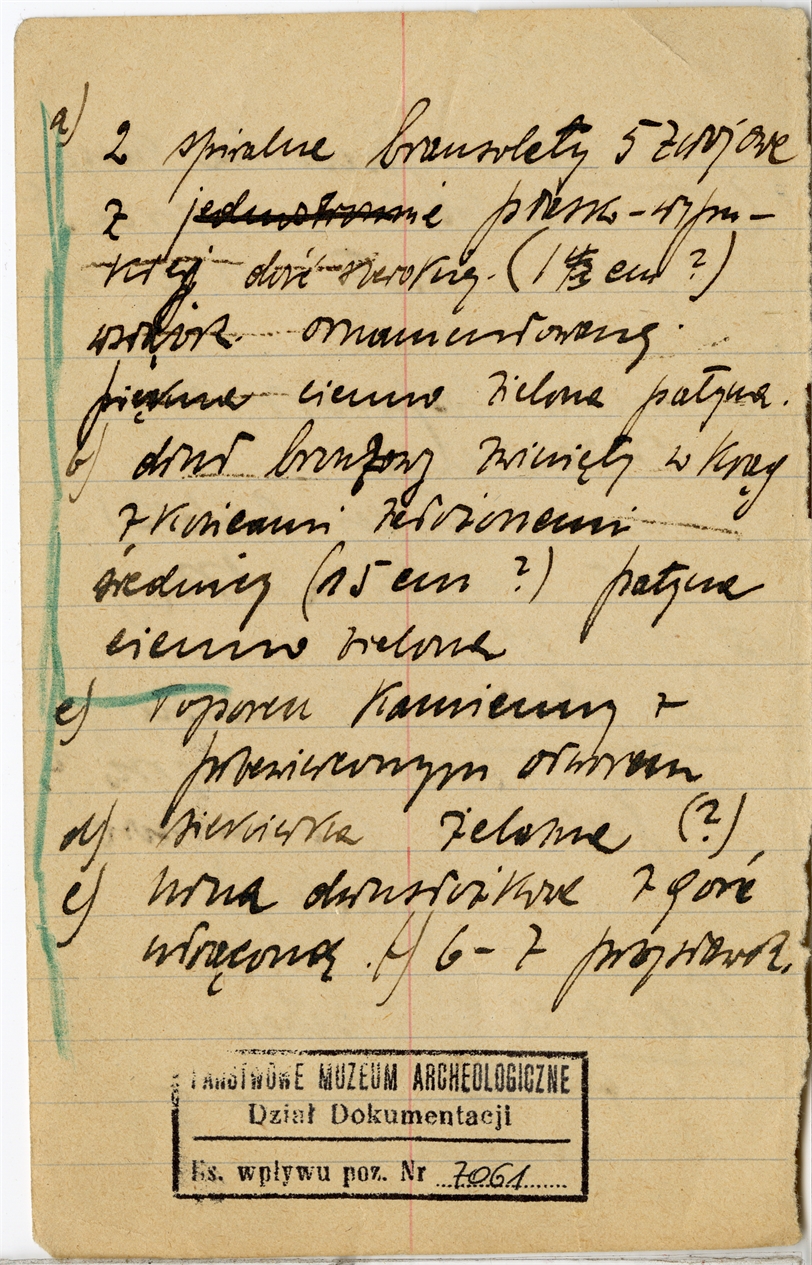 a) 2 spiralne bransolety 5 zwojowe
z jednostronnie płasko-wypu-
kłej dość szerokiej. (1 cm ?)
wstążk. ornamentowaną.
piękna ciemno zielona patyna.
b) drut bronzowy zwinięty w krąg
z końcami
średnicy (15 cm ?) patyna
ciemno zielona
c) toporek kamienny z
przewierconym otworem
d) siekierka żelazna (?)
e) urna dwustożkowa z górą
utrąconą. f) 6-7 przystawek.
PAŃSTWOWE MUZEUM ARCHEOLOGICZNE
Dział Dokumentacji
Ks. wpływu poz. Nr 7061